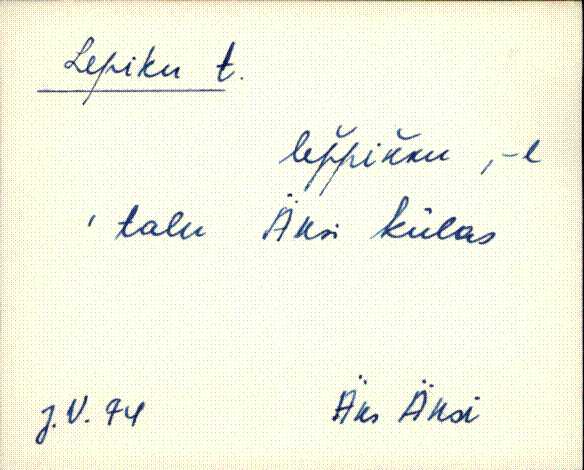 Lepiku t.
lep̆pik̆ku, -l
' talu Äksi külas
J.V. 74 Äks Äksi